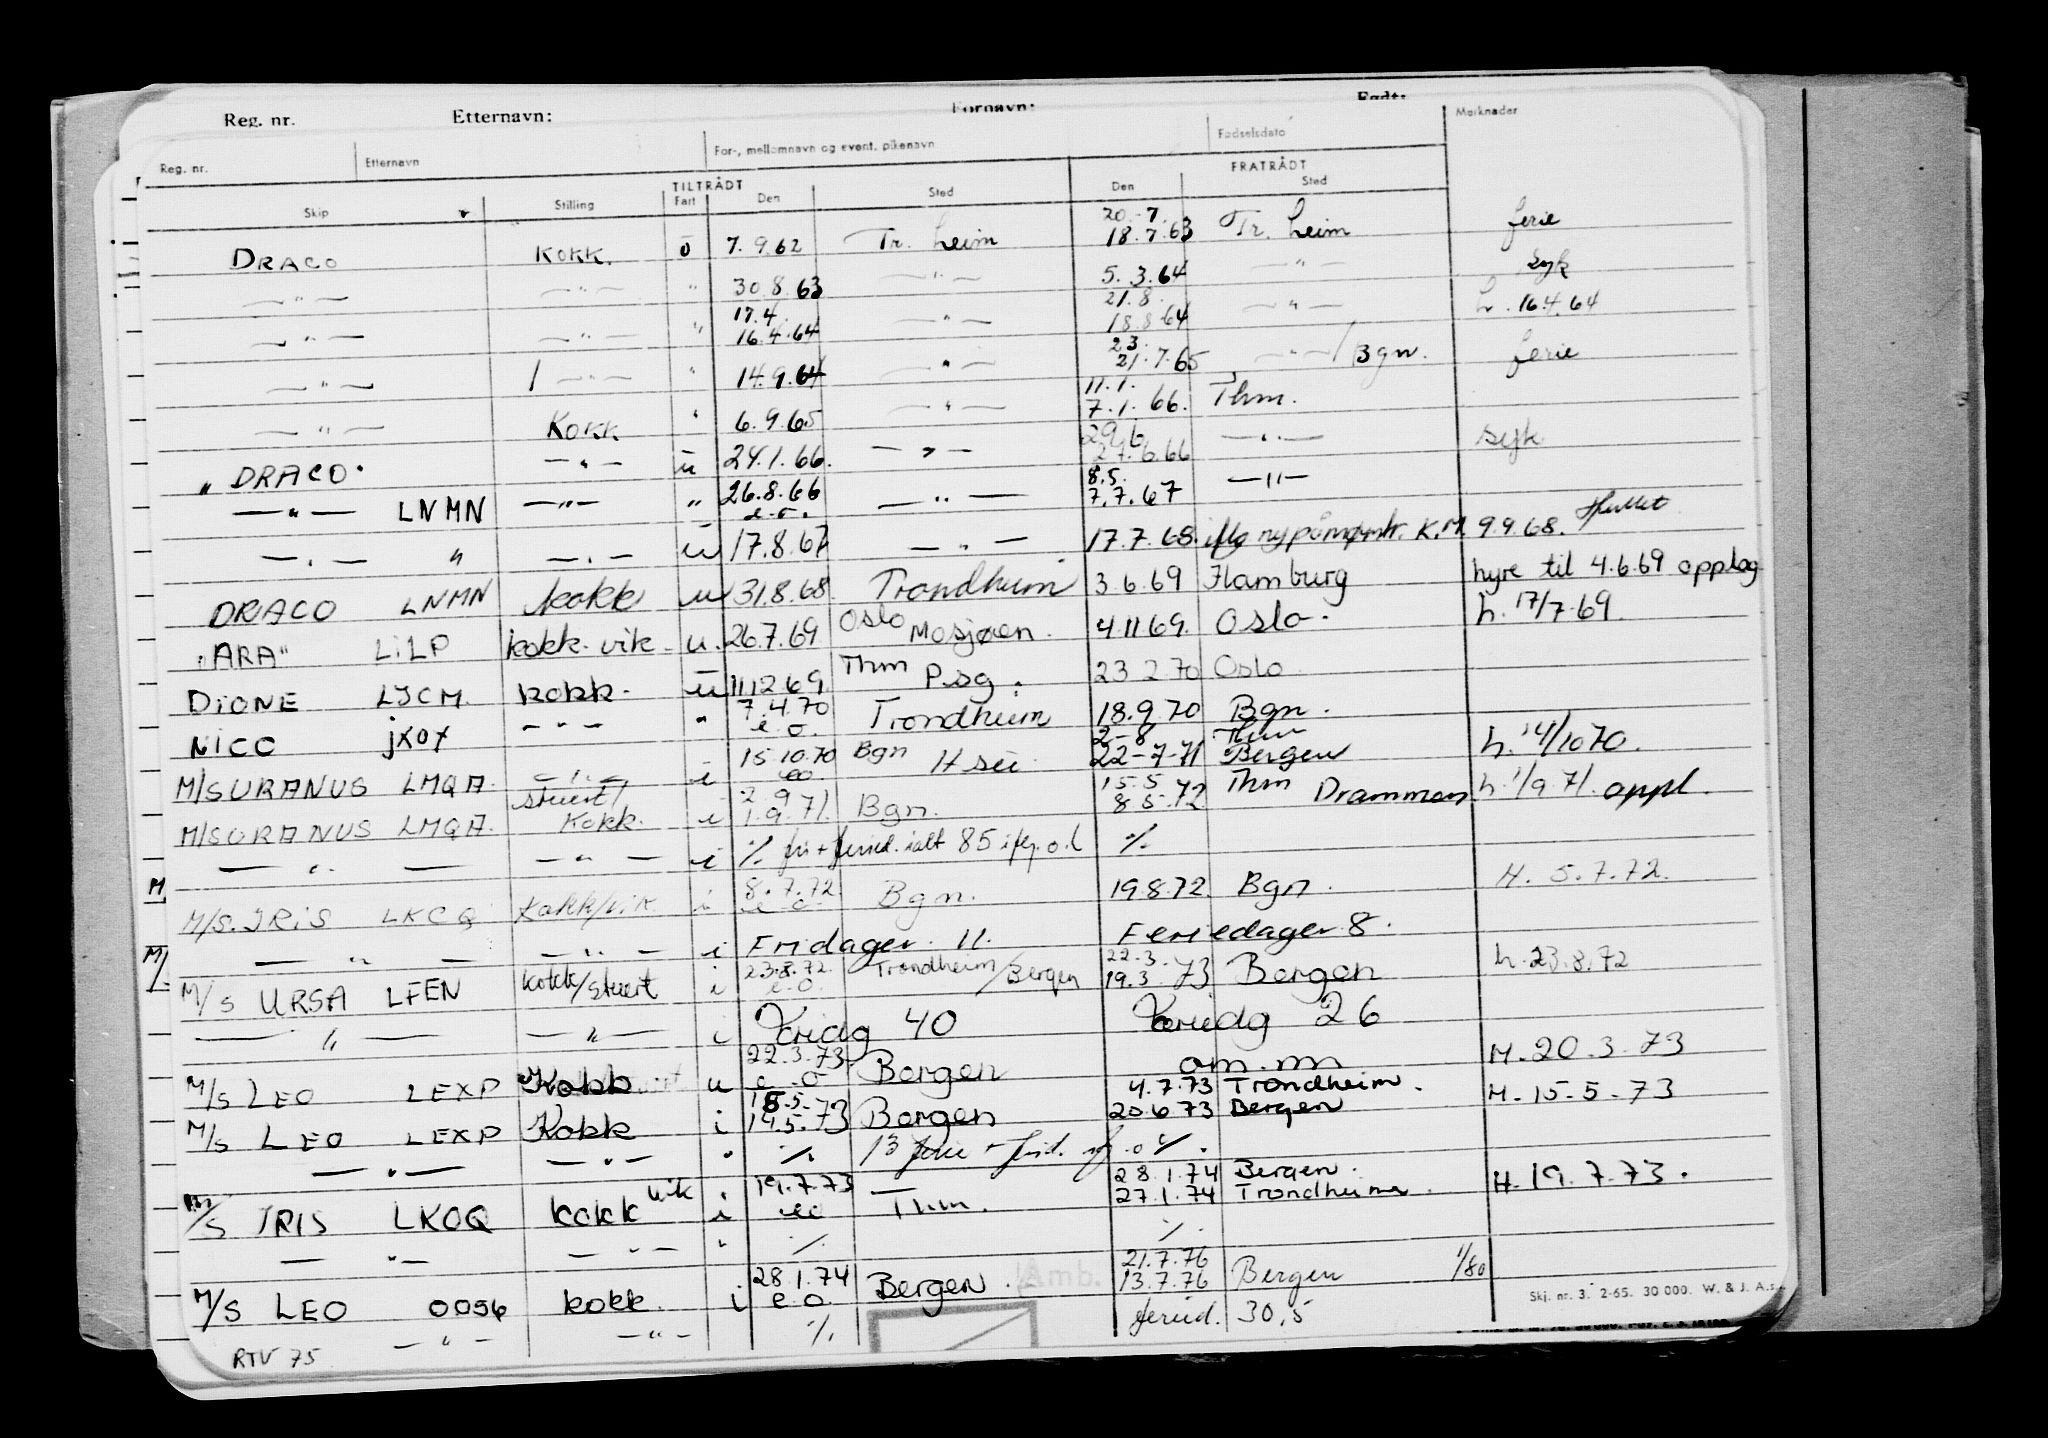 Reg. nr. Etternavn: Fornavn: Født:
Reg. nr. Etternavn For-, mellomnavn og event. pikenavn Fødselsdato Merknader
TILTRÅDT FRATRÅDT
Skip Stilling Fart Den Sted Den Sted
20.-7.
DRACO KOKK. ū 7.9.62 Tr. heim 18.7.63 Tr. heim ferie
—"— —"— " 30.8.63 —"— 5.3.64 —"— Syk
17.4. 21.8.
—"— —"— " 16.4.64 —"— 18.8.64 —"— h. 16.4.64
23.
—"— / —"— " 14.9.64 —"— 21.7.65 —"—/Bgn. ferie
11.1.
—"— KOKK " 6.9.65 —"— 7.1.66. Thm.
29.6
"DRACO" —"— ū 24.1.66. —"— 27.6.66 —"— syk
8.5.
—"— LNMN —"— " 26.8.66 —"— 7.7.67 —"—
e.o.
—"— " —"— u 17.8.67 —"— 17.7.68. iflg ny påmønstr. K.M. 9.9.68.
DRACO LNMN kokk u 31.8.68. Trondheim 3.6.69 Hamburg hyre til 4.6.69 opplag
"ARA" LiLP kokk. vik. u. 26.7.69 Oslo Mosjøen. 4.11.69. Oslo. h. 17/7-69.
DIONE LJCM. kokk. ū 11.12.69. Thm P.sg. 23.2.70 Oslo.
7.4.70
NICO jXOY —"— " e.o. Trondheim 18.9.70 Bgn.
15.10.70 2-8 Thm
M/S URANUS LMQA. —"— i eo. Bgn H sei 22-7-71 Bergen h. 14/10 70.
stuert/ 2.9 15.5 Thm
M/S URANUS LMQA. Kokk. i 1.9.71. Bgn. 8.5.72 Drammen h. 1/9.71. oppl.
—"— —"— i %. fri + feried. ialt 85 iflg. o.l %.
M.
8.7.72
M/S. IRIS LKCQ Kokk/vik i e.o. Bgn. 19.8.72. Bgn. H. 5.7.72.
—"— —"— i Fridager. 11. Feriedager 8.
M/.
23.8.72. Trondheim 22.3.
M/S URSA LFEN kokk/stuert i e.o. /Bergen 19.3.73 Bergen h. 23.8.72
—"— —"— i Fridag 40 Feriedg 26
22.3.73.
M/S LEO LEXP Kokk u e.o Bergen om.m M. 20.3.73
15.5. 4.7.73 Trondheim.
M/S LEO LEXP Kokk i 14.5.73 Bergen 20.6.73 Bergen M. 15-5-73
—"— —"— " %. 13 ferie + frid.
19.7.73 28.1.74 Bergen.
M/S IRIS LKOQ kokk vik i eo Thm. 27.1.74 Trondheim. H. 19.7.73.
—"— —"— " %. %.
28.1.74 21.7.76
M/S LEO 0056 kokk. i e.o. Bergen. 13.7.76 Bergen 1/80
Amb.
—"— —"— %. feried. 30,5
RTV 75
Skj. nr. 3. 2-65. 30 000. W. & J. A.s.